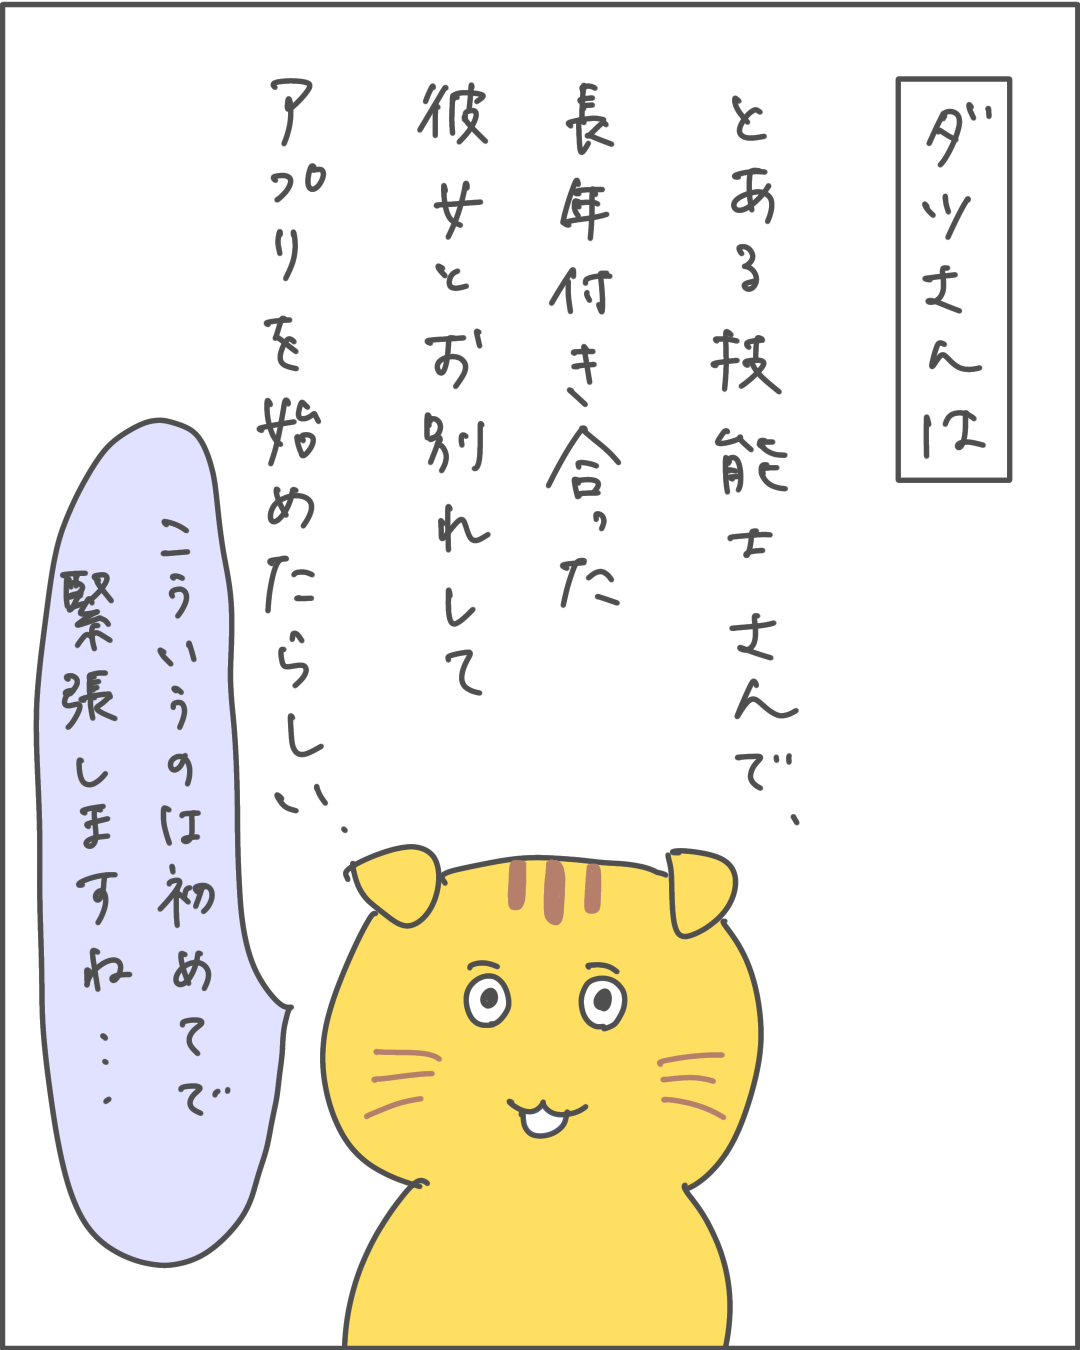 ダツさんは
とある技能士さんで、
長年付き合った
彼女とお別れして
アプリを始めたらしい、
こういうのは初めてで
緊張しますね…